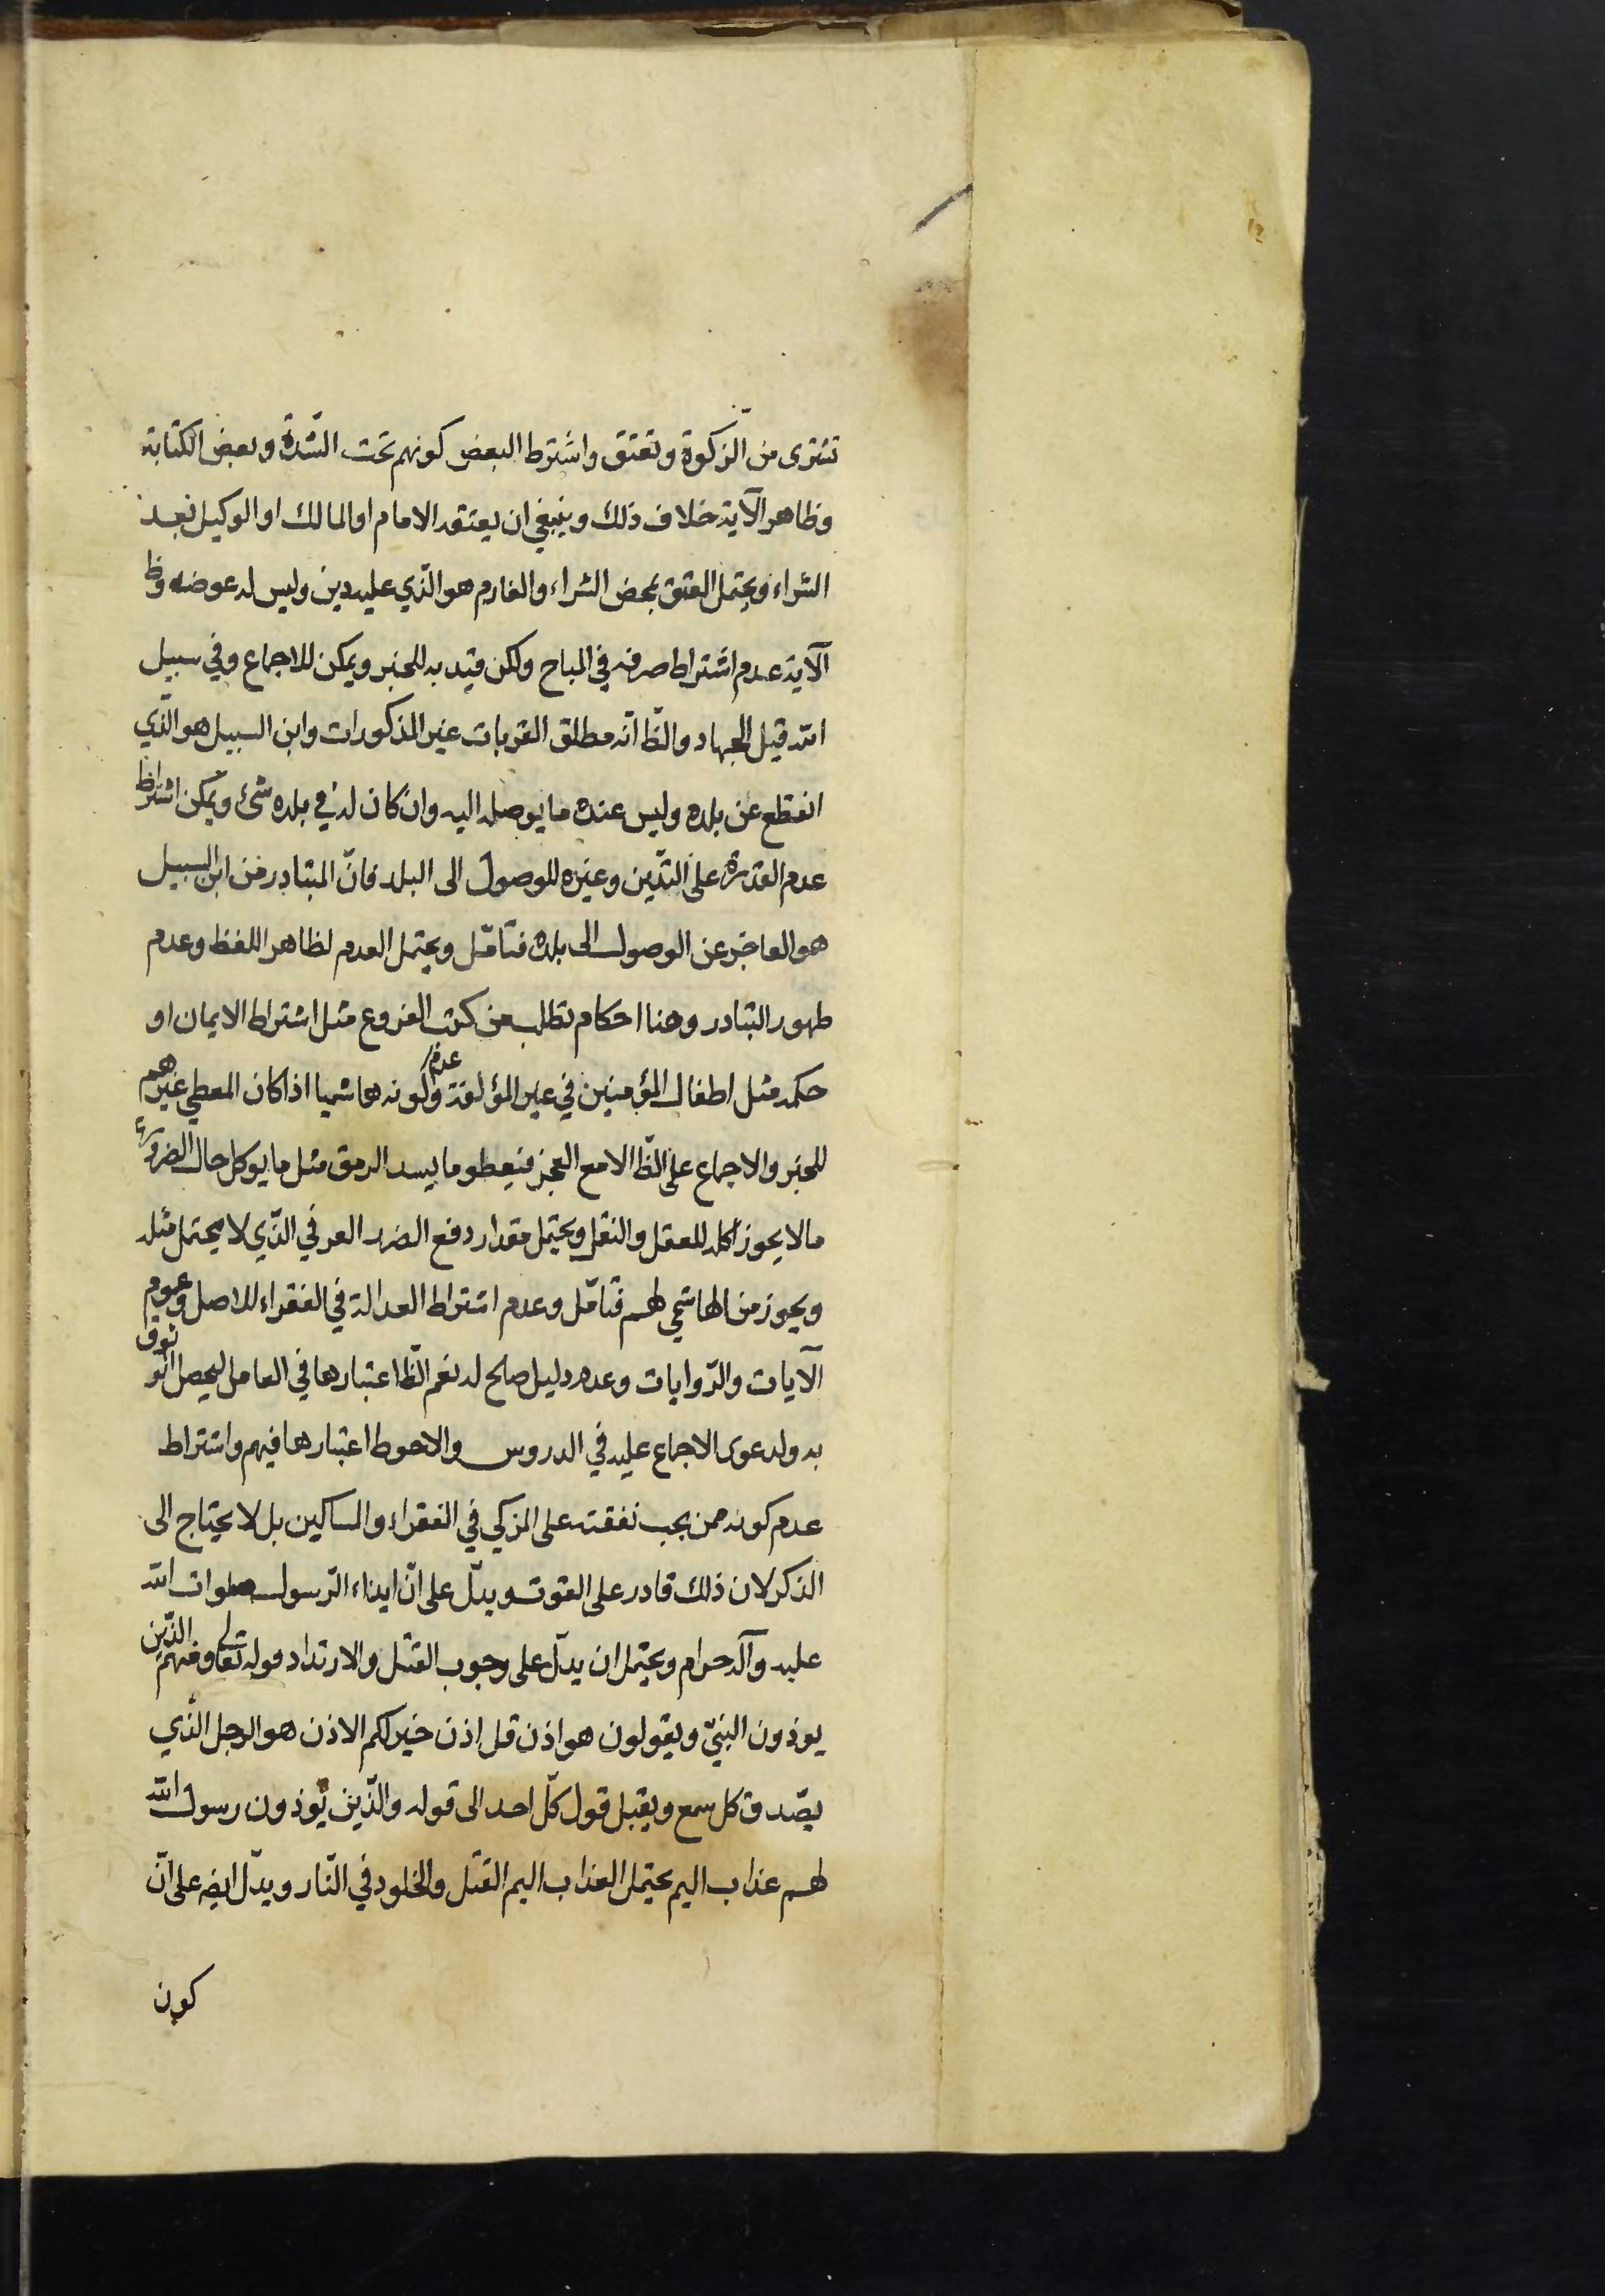 تشترى من الزّكوة وتعتق واشترط البعض كونهم تحت الشّدة وبعض الكتابة
وظاهر الآية خلاف ذلك وينبغي ان يعتقه الامام او المالك او الوكيل بعد
الشراء ويحتمل العتق بمحض الشراء والغارم هو الّذي عليه دين وليس له عوضه وظ
الآية عدم اشتراط صرفه في المباح ولكن قيد به للخبر ويمكن للاجماع وفي سبيل
الله قيل الجهاد والظّ انّه مطلق القربات غير المذكورات وابن السبيل هو الّذي
انقطع عن بلده وليس عنده ما يوصله اليه وان كان له في بلده شئ ويمكن اشتراط
عدم القدرة على التّدين وغيره للوصول الى البلد فانّ المتبادر من ابن السبيل
هو العاجز عن الوصول الى بلده فتأمّل ويحتمل العدم لظاهر اللفظ وعدم
ظهور التبادر وهنا احكام تطلب من كتب الفروع مثل اشتراط الايمان او
حكمه مثل اطفال المؤمنين في غير المؤلفة وعدم كونه هاشميا اذا كان المعطي غيرهم
للخبر والاجماع على الظّ الا مع العجز فيعطو ما يسد الرمق مثل ما يوكل حال الضرورة
ما لا يجوز اكله للعقل والنقل ويحتمل مقدار دفع الضرر العرفي الّذي لا يحتمل مثله
ويجوز من الهاشمي لهم فتأمّل وعدم اشتراط العدالة في الفقراء للاصل وعموم
الآيات والرّوايات وعدم دليل صالح له نعم الظّ اعتبارها في العامل ليحصل الوثوق
به ولدعوى الاجماع عليه في الدروس والاحوط اعتبارها فيهم واشتراط
عدم كونه ممن يجب نفقته على المزكي في الفقراء والمساكين بل لا يحتاج الى
الذكر لان ذلك قادر على القوت ويدلّ على انّ ايذاء الرّسول صلوات الله
عليه وآله حرام ويحتمل ان يدلّ على وجوب القتل والارتداد قوله تعالى ومنهم الّذين
يوذون النبيّ ويقولون هو اذن قل اذن خير لكم الاذن هو الرجل الّذي
يصّدق كل سمع ويقبل قول كلّ احد الى قوله والّذين يوذون رسول الله
لهم عذاب اليم يحتمل العذاب اليم القتل والخلود في النّار ويدّل ايضه على انّ
كون